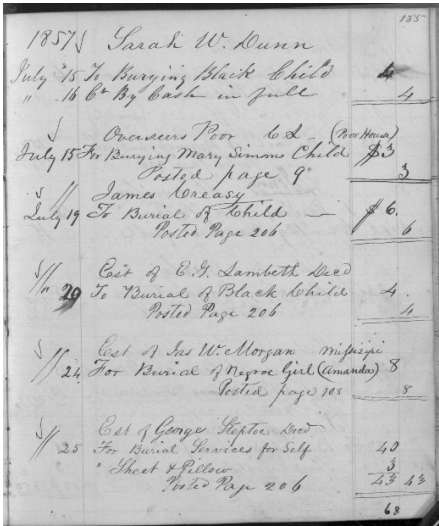 135
1857 Sarah W. Dunn
July 15 To Burying Black Child 4
" 16 Cr By Cash in full 4
Overseers Poor (Poor House)
July 15 For Burying Mary Simons Child $3
Posted page 9 3
James Creasy
July 19 To Burial of Child — $6.
Posted Page 206 6
Est of E. G. Lambeth Decd
" 20 To Burial of Black Child 4.
Posted Page 206 4
Est of Jas W. Morgan Missisipi
" 24. For Burial of Negroe Girl (Amanda) 8
Posted page 108 8
Est of George Steptoe Decd
" 25 For Burial Services for Self 40
" Sheet & Pillow 3
43 43
Posted Page 206
68